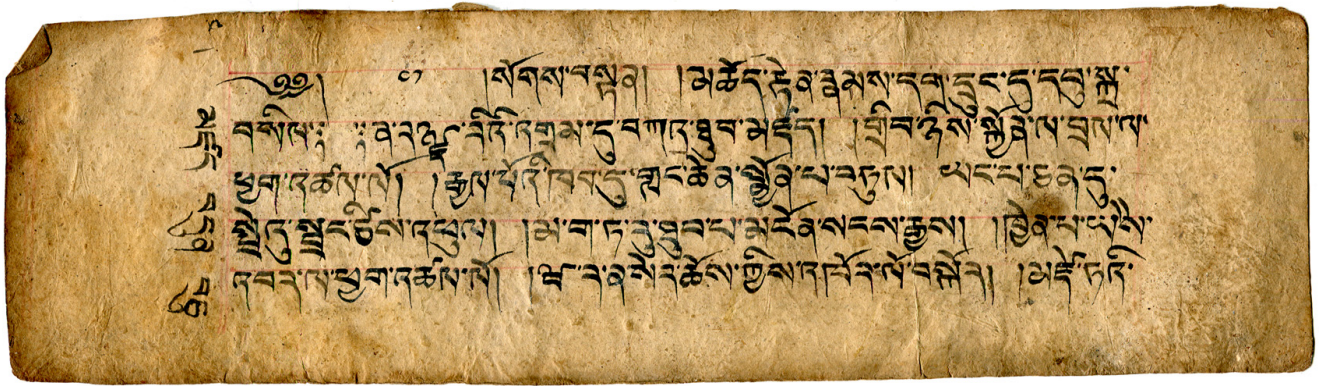 ༄༅། །སོགས་བསྟན། །མཆོད་རྟེན་རྣམས་དག་དྲུང་དུ་དབུ་སྐྲ་
བསིལ༔ ༔ན་ར་ འགྲམ་དུ་བཀའ་ཐུབ་མཛད། །གྲིབ་ཉིས་སྐྱོན་ལ་བྲལ་ལ་
ཕྱག་འཚལ་ལོ། །རྒྱལ་པོའི་ཁབ་དུ་གླང་ཆེན་སྨྱོན་པ་བཏུལ། ཡང་པ་ཅན་དུ་
སྤྲེའུ་སྦྲང་རྩིས་འཕུལ། །མ་ག་ཏ་རུ་ཐུབ་པ་མངོན་སངས་རྒྱས། །ཁྱེན་པ་ཡིས་
འབར་ལ་ཕྱག་འཚལ་ལོ། །ཝ་ར་ན་སེར་ཆོས་ཀྱིས་འཁོར་ལོ་བསྐོར། །མཛེ་ཏའི་